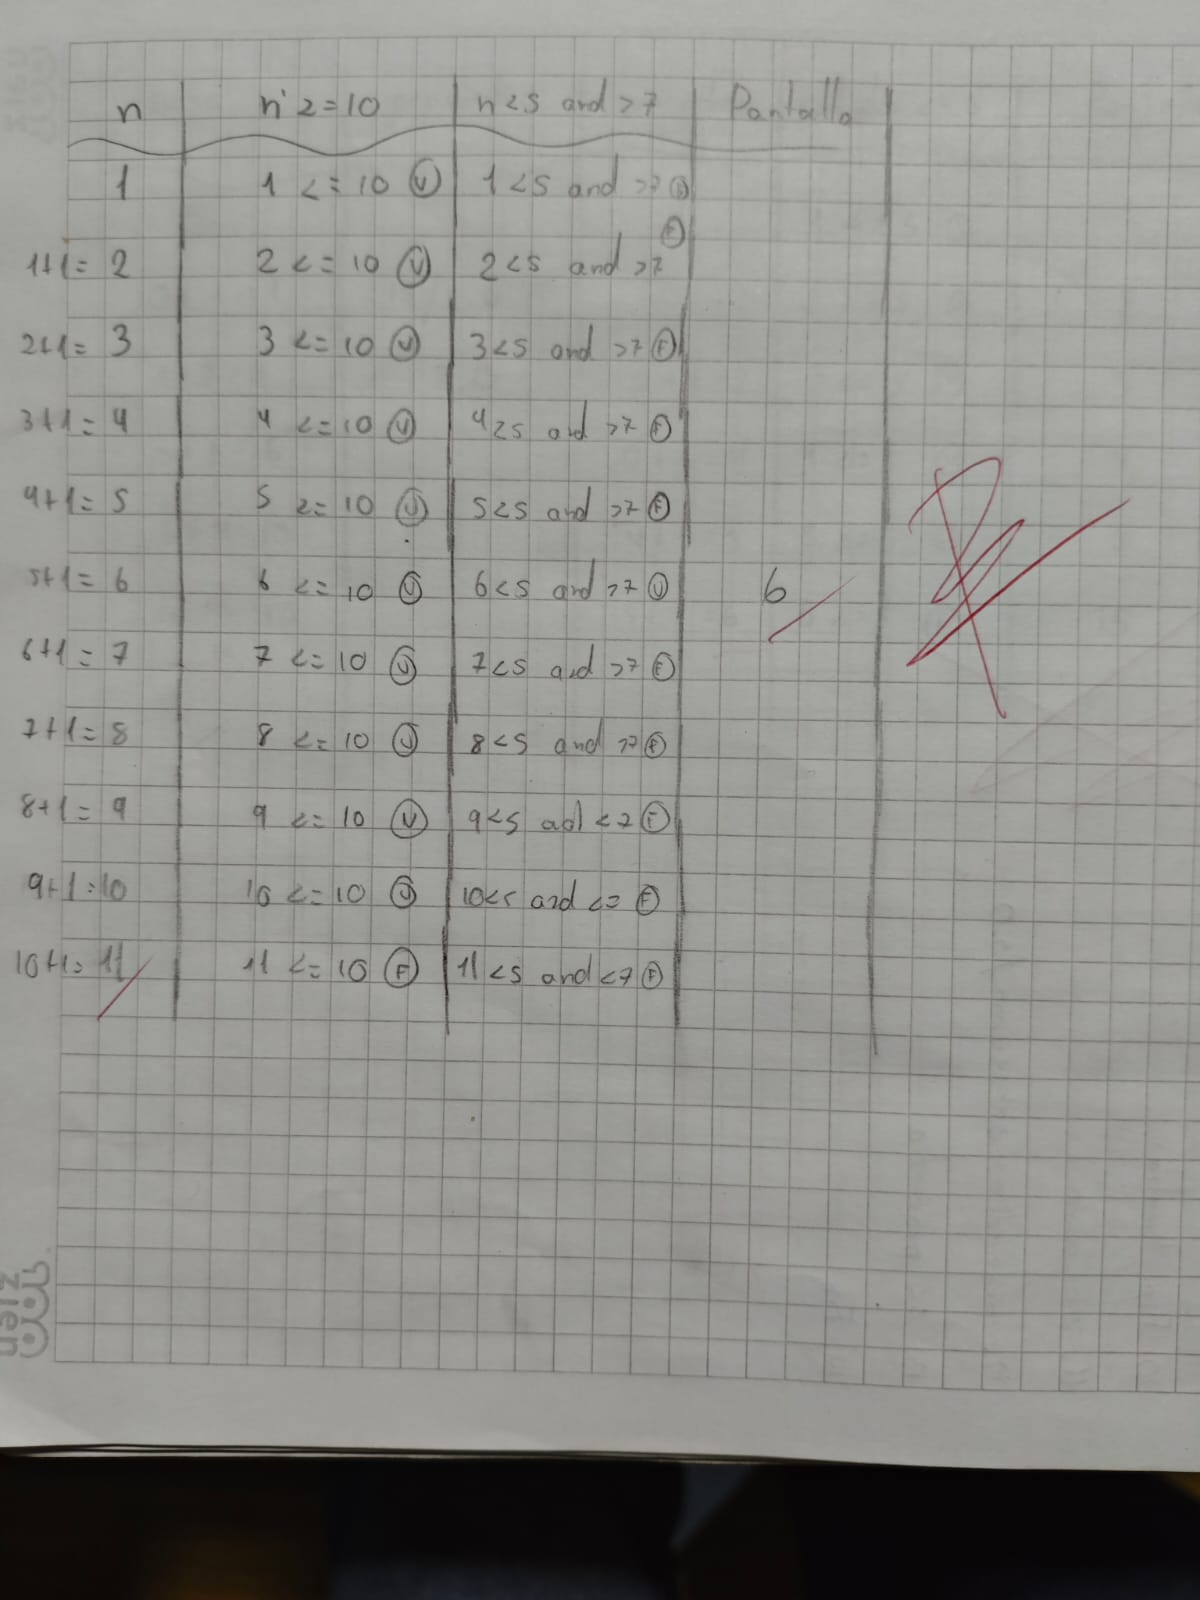 n n°2=10 n<5 and >7 Pantalla
1 1 <= 10 V 1<5 and >7 F
1+1= 2 2 <= 10 V 2<5 and >7 F
2+1= 3 3 <= 10 V 3<5 and >7 F
3+1= 4 4 <= 10 V 4<5 and >7 F
4+1= 5 5 <= 10 V 5<5 and >7 F
5+1= 6 6 <= 10 V 6<5 and >7 V 6
6+1= 7 7 <= 10 V 7<5 and >7 F
7+1= 8 8 <= 10 V 8<5 and >7 F
8+1= 9 9 <= 10 V 9<5 ad <7 F
9+1=10 10 <= 10 V 10<5 and <= F
10+1= 11 11 <= 10 F 11<5 and <7 F